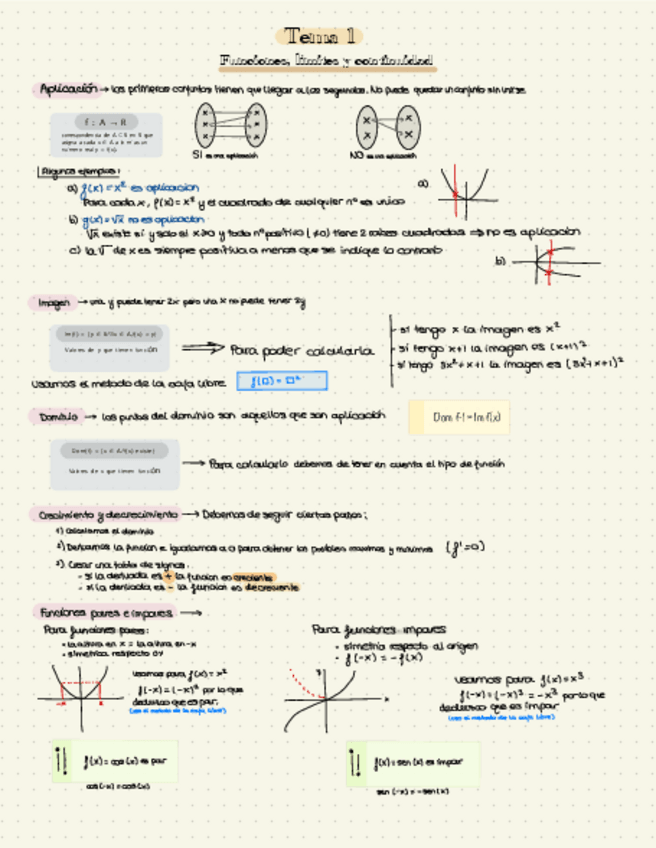 Tema 1
Funciones, límites y continuidad
Aplicación → los primeros conjuntos tienen que llegar a los segundos. No puede quedar un conjunto sin unirse
f: A → R
correspondencia de A C R en R que
asigna a cada x ∈ A a b el único
número real y = f(x).
SI es una aplicación
NO es una aplicación
Algunos ejemplos:
a) f(x) = x² es aplicación
Para cada x, f(x) = x² y el cuadrado de cualquier nº es único
a)
b) g(x) = √x no es aplicación
√x existe si y solo si x≥0 y todo nº positivo (≠0) tiene 2 raíces cuadradas ⇒ no es aplicación
c) la √ de x es siempre positiva a menos que se indique lo contrario
b)
Imagen → una y puede tener 2x pero una x no puede tener 2y
Valores de y que tienen función
⇒ Para poder calcularla
- si tengo x la imagen es x²
- si tengo x+1 la imagen es (x+1)²
- si tengo 3x²+x+1 la imagen es (3x²+x+1)²
usamos el método de la caja libre
f(□) = □²
Dominio → los puntos del dominio son aquellos que son aplicación
Dom f-1 = Im f(x)
Valores de x que tienen función
→ Para calcularlo debemos de tener en cuenta el tipo de función
Crecimiento y decrecimiento → Debemos de seguir ciertos pasos:
1) Calculamos el dominio
2) Derivamos la función e igualamos a 0 para obtener los posibles máximos y mínimos (f'=0)
3) Crear una tabla de signos.
- si la derivada es + la función es creciente
- si la derivada es - la función es decreciente
Funciones pares e impares →
Para funciones pares:
• la altura en x = la altura en -x
• simétrica respecto OY
Para funciones impares
• simetría respecto al origen
• f(-x) = -f(x)
-x
x
veamos para f(x) = x²
f(-x) = (-x)² por lo que
deducimos que es par.
(con el método de la caja libre)
veamos para f(x) = x³
f(-x) = (-x)³ = -x³ por lo que
deducimos que es impar
(con el método de la caja libre)
¡¡ f(x) = cos(x) es par
cos(-x) = cos(x)
¡¡ f(x) = sen(x) es impar
sen(-x) = -sen(x)